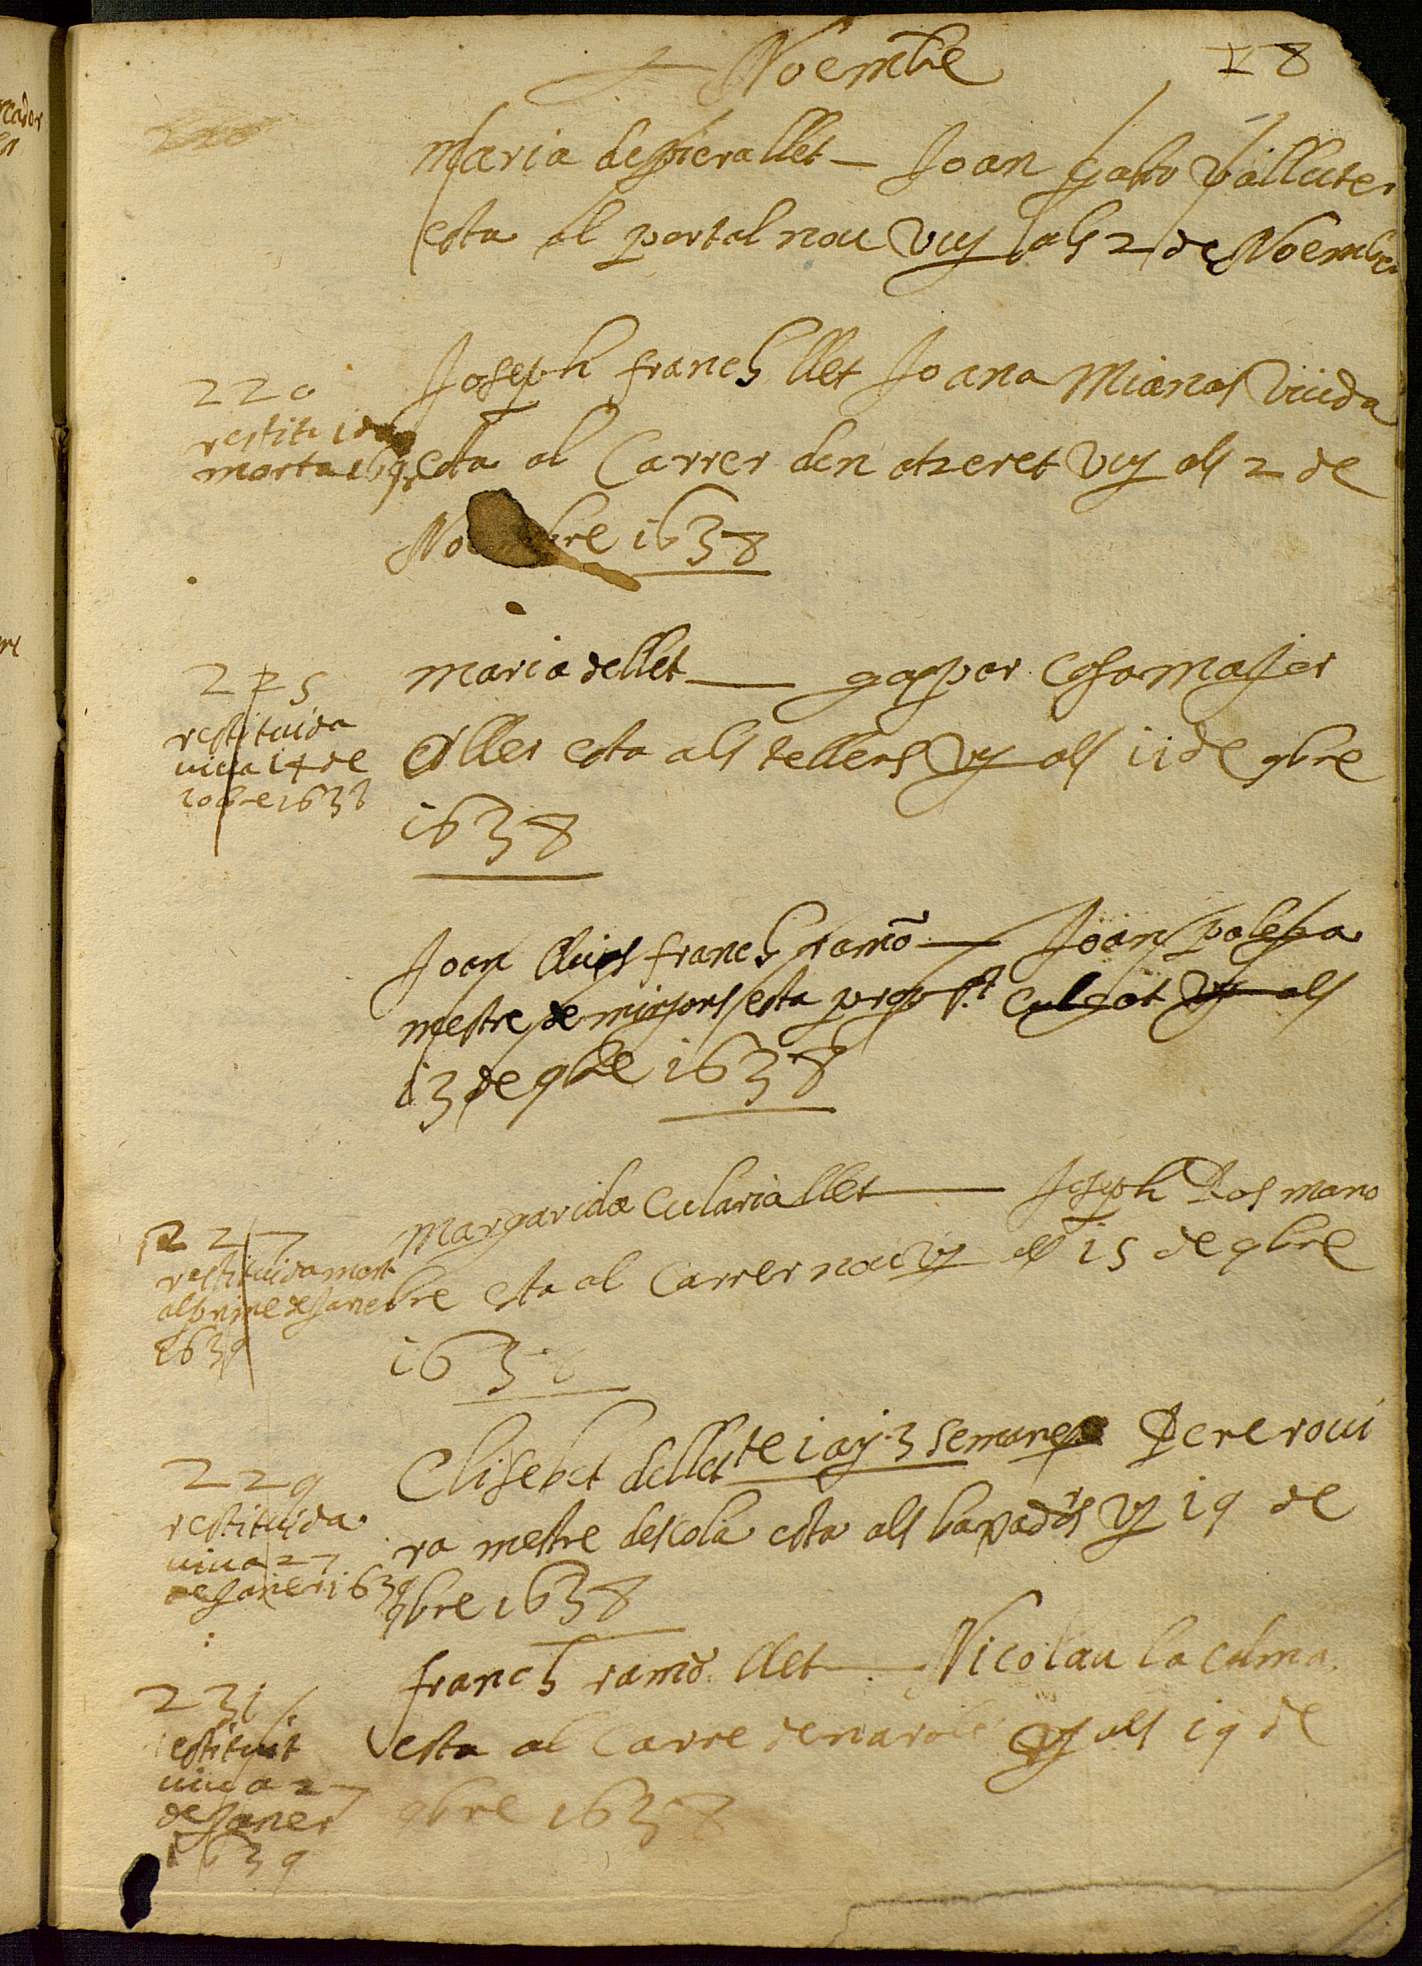 Noembre
18
Maria de llet — Joan
esta al portal nou vuy als 2 de Noembre
220
restituida
morta
Joseph franch llet Joana Mianas viuda
esta al Carrer den atzeret vuy als 2 de
Noembre 1638
225
restituida
viva 14 de
10bre 1638
maria de llet — gaspar Casamajer
esta als tellers vy als 11 de 9bre
1638
Joan lluis franch ramō — Joan
mestre de minyons esta prop St. Culgat vy als
13 de 9bre 1638
227
restituida mort
al prime de Janer
1639
Margarida llet — Joseph Ros mano
bre esta al Carrer nou vy als 15 de 9bre
1638
229
restituida
viva 27
de Janer 1639
Elisebet de llet de 1 ay 3 semanes Pere rovi
ra mestre descola esta als vy 19 de
9bre 1638
231
restituit
viu a 27
de Janer
1639
franch ramō llet — Nicolau
esta al Carre vy als 19 de
9bre 1638